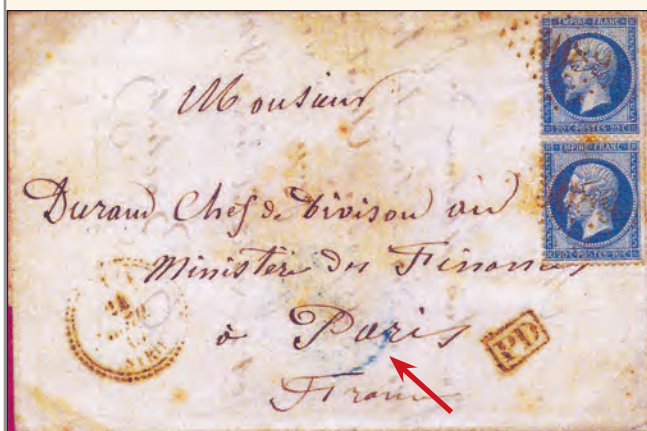 EMPIRE FRANC
20 C POSTES 20 C
EMPIRE FRANC
20 C POSTES 20 C
Monsieur
Durand Chef de Divison au
Ministère des Finances
à Paris
France
24
PD